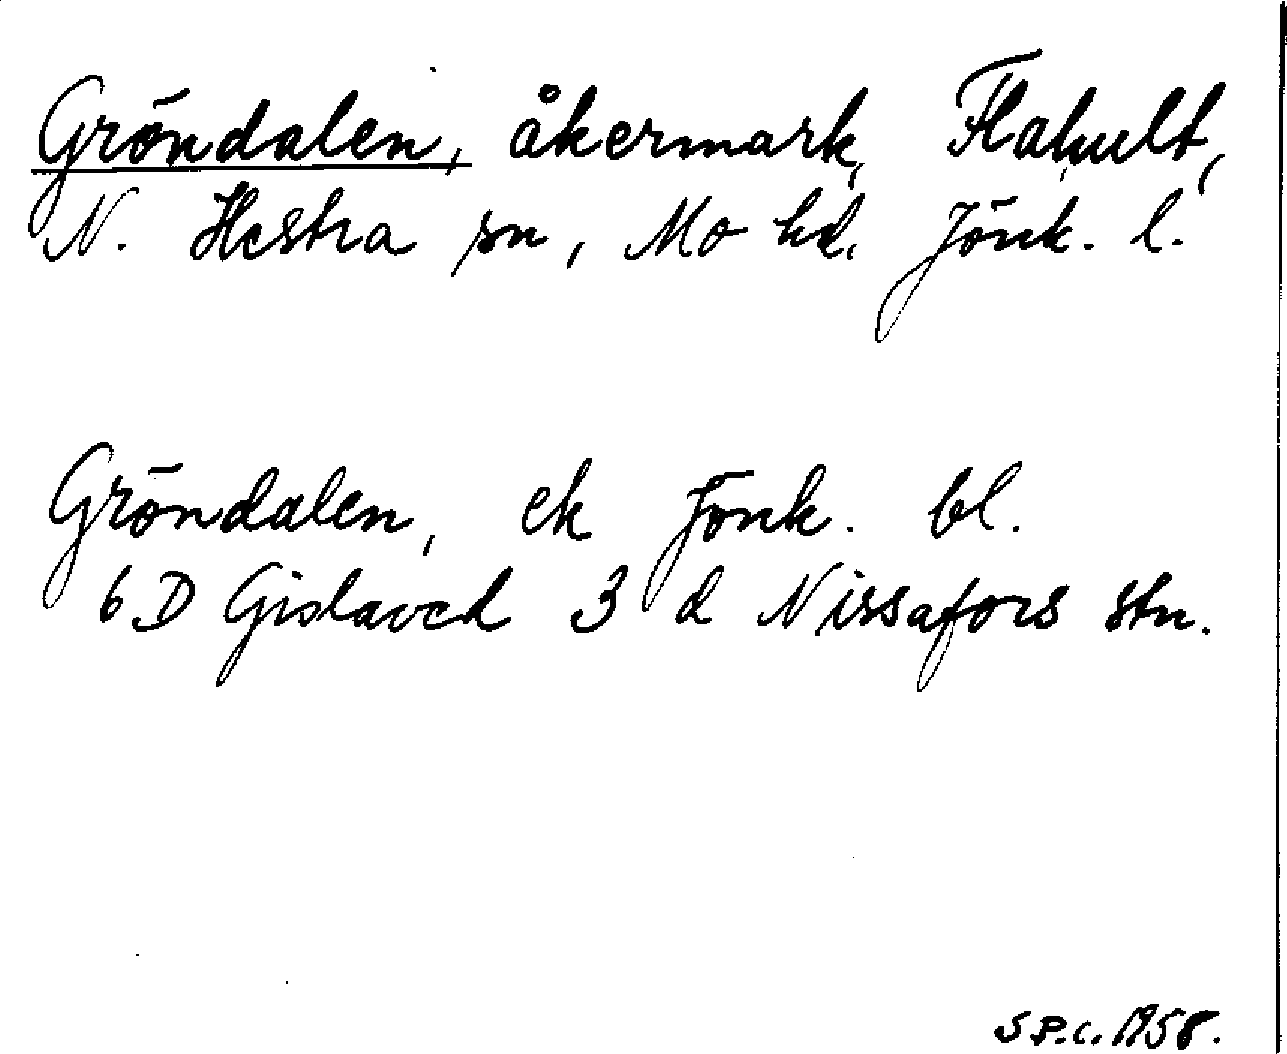 Gröndalen, åkermark, Flakult,
N. Hestra sn, Mo hd. Jönk. l.
Gröndalen, ek Jönk. bl.
6 D Gislaved 3 d Nissafors stn.
S.P.C. 1958.